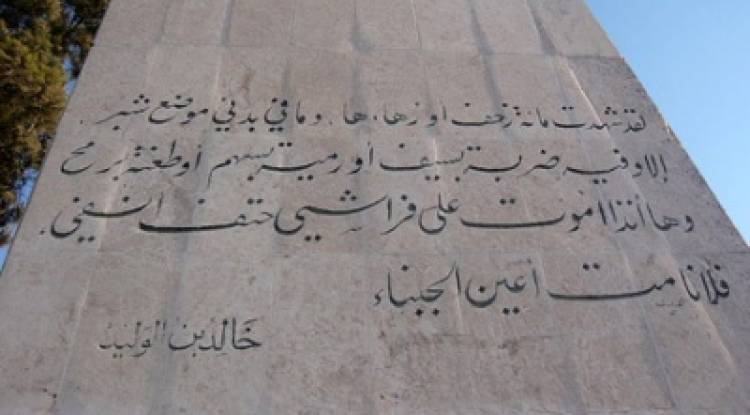 لقد شهدت مائة زحف أو زهاءها، وما في بدني موضع شبر
إلا وفيه ضربة بسيف أو رمية بسهم أو طعنة برمح
وها أنذا أموت على فراشي حتف أنفي.
فلا نامت أعين الجبناء
خالد بن الوليد